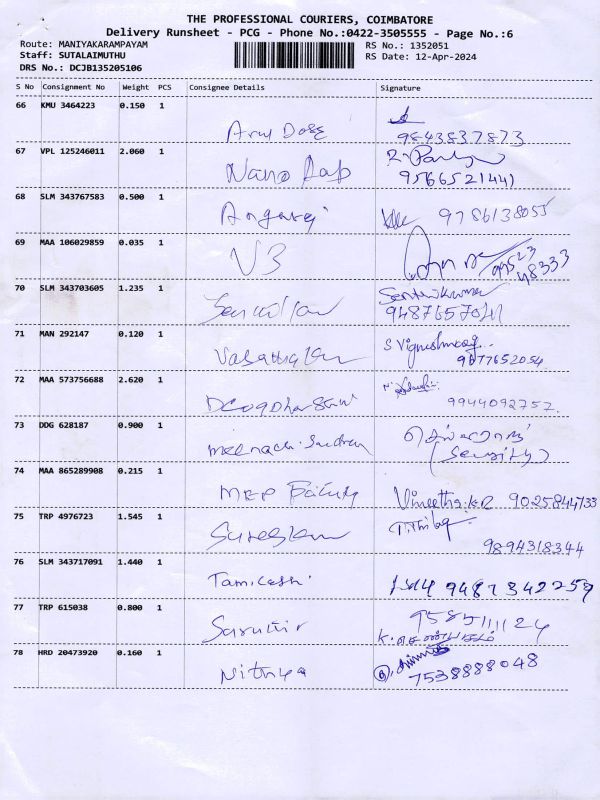 THE PROFESSIONAL COURIERS, COIMBATORE
Delivery Runsheet - PCG - Phone No.:0422-3505555 - Page No.:6
Route: MANIYAKARAMPAYAM RS No.: 1352051
Staff: SUTALAIMUTHU RS Date: 12-Apr-2024
DRS No.: DCJB135205106
S No Consignment No Weight PCS Consignee Details Signature
66 KMU 3464223 0.150 1
Arul Dose 9843837873
67 VPL 125246011 2.060 1
Nano Lab 9566521441
68 SLM 343767583 0.500 1
9786138055
69 MAA 106029859 0.035 1
V3 99523 48333
70 SLM 343703605 1.235 1
Senthilkumar
9487657041
71 MAN 292147 0.120 1
S Vigneshwaraj
9677652054
72 MAA 573756688 2.620 1
Deepdharshini 9944092757
73 DDG 628187 0.900 1
Meenachi Sundram (Security)
74 MAA 865289908 0.215 1
MEP Vineetha.KR 9025844733
75 TRP 4976723 1.545 1
Sureskumar 9894318344
76 SLM 343717091 1.440 1
9487342259
77 TRP 615038 0.800 1
9585111124
78 HRD 20473920 0.160 1
Nithya 7538888048